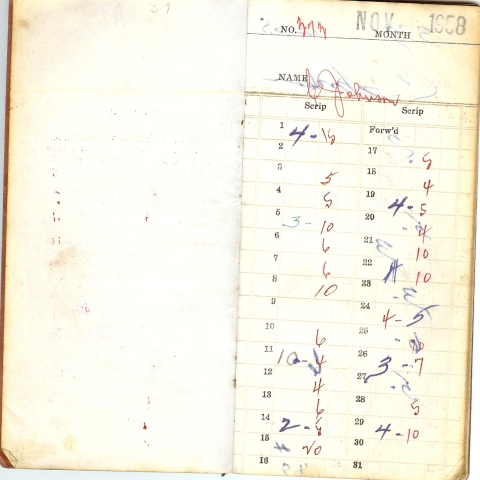 NO. 373 NOV 1958
MONTH
NAME J Johnson
Scrip Scrip
1 4-15 Forw'd
2 17 5
3 5 18 4
4 5 19 4-5
5 3-10 20 4
6 6 21 10
7 6 22 10
8 10 23
9 24 4-5
10 6 25
11 10-4 26 3 7
12 4 27
13 6 28 5
14 2- 29 4-10
15 20 30
16 31